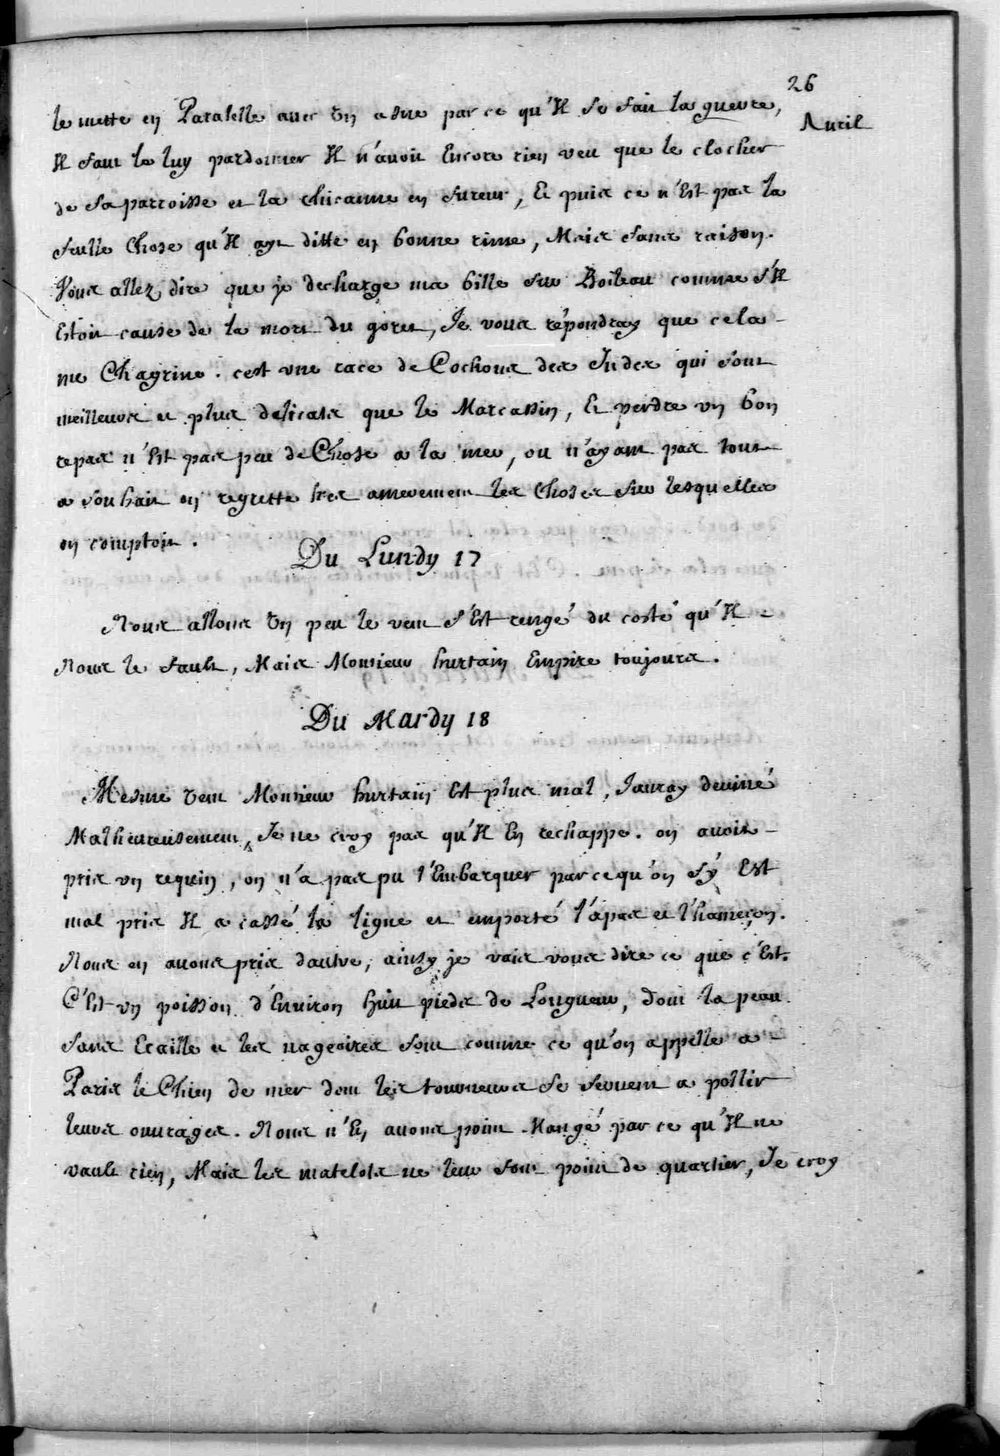 26
Avril
le mette en Paralelle avec Un asne par ce qu'Il se fait la guerre,
Il faut le luy pardonner Il n'avoit Encore rien veu que le clocher
de sa parroisse et la chicanne en fureur, Et puis ce n'Est pas la
seulle Chose qu'Il ayt ditte en bonne rime, Mais sans raison.
Vous allez dire que je decharge ma bille sur Boileau comme s'Il
Estoit cause de la mort du goret, Je vous répondray que cela
me Chagrine. c'est une race de Cochons des Indes qui sont
meilleurs et plus delicats que le Marcassin, Et perdre un bon
repas n'Est pas peu de Chose a la mer, ou n'ayant pas tout
a souhait on regrette tres amerement les choses sur lesquelles
on comptoit.
Du Lundy 17
Nous allons Un peu le vent s'Est rengé du costé qu'Il
Nous le fault, Mais Monsieur hurtain Empire toujours.
Du Mardy 18
Mesme vent Monsieur hurtain Est plus mal, J'auray deviné
Malheureusement, Je ne croy pas qu'Il En rechappe. on avoit
pris un requin, on n'a pas pu l'Embarquer par ce qu'on s'y Est
mal pris Il a cassé la ligne et emporté l'apas et l'hameçon.
Nous en avons pris d'autre, ainsy je vais vous dire ce que c'Est.
C'Est un poisson d'Environ huit pieds de Longueur, dont la peau
sans Ecaille et les nageoires sont comme ce qu'on appelle a
Paris le Chien de mer dont les tourneurs se servent a pollir
leurs ouvrages. Nous n'En avons point Mangé par ce qu'Il ne
vault rien, Mais les matelots ne leur font point de quartier, Je croy